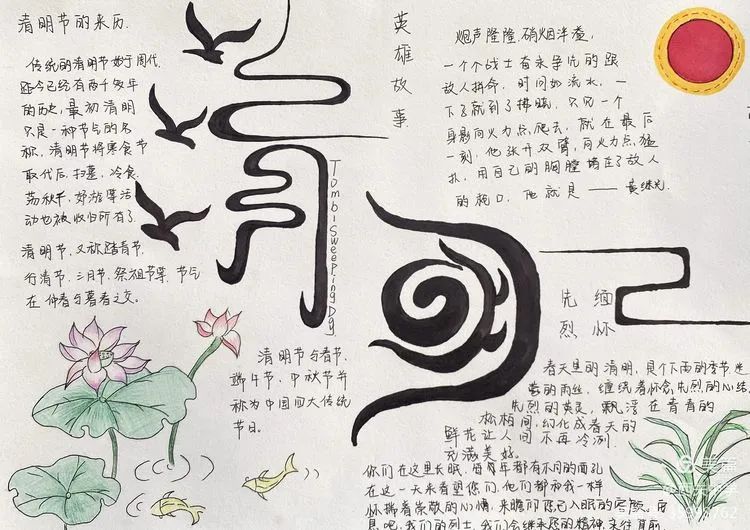 清明节的来历
传统的清明节始于周代,
距今已经有两千多年
的历史,最初清明
只是一种节气的名
称,清明节将寒食节
取代后,扫墓,冷食,
荡秋千,郊游等活
动也被收归所有了
清明节,又称踏青节,
行清节、三月节、祭祖节等,节气
在仲春与暮春之交。
清明节与春节、
端午节、中秋节并
称为中国四大传统
节日。
清明
Tomb-Sweeping Day
英雄故事
炮声隆隆,硝烟洋溢,
一个个战士奋永争先的跟
敌人拼命,时间如流水,一
下子就到了拂晓,只见一个
身影向火力点爬去,就在最后
一刻,他张开双臂,向火力点猛
扑,用自己的胸膛堵在了敌人
的枪口,他就是——黄继光
缅怀
先烈
春天里的清明,是个下雨的季节
的雨丝,缠绕着怀念先烈的心结
先烈的英灵,飘浮在青青的
松柏间,幻化成春天的
鲜花让人间不再冷冽
充满美好。
你们在这里长眠,每年都有不同的面孔
在这一天来看望你们,他们都和我一样
怀揣着崇敬的心情,来瞻仰
息吧,我们的烈士,我们会继承您的精神,